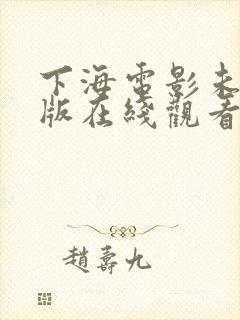 下海電影未
版在綫觀看
趙壽九